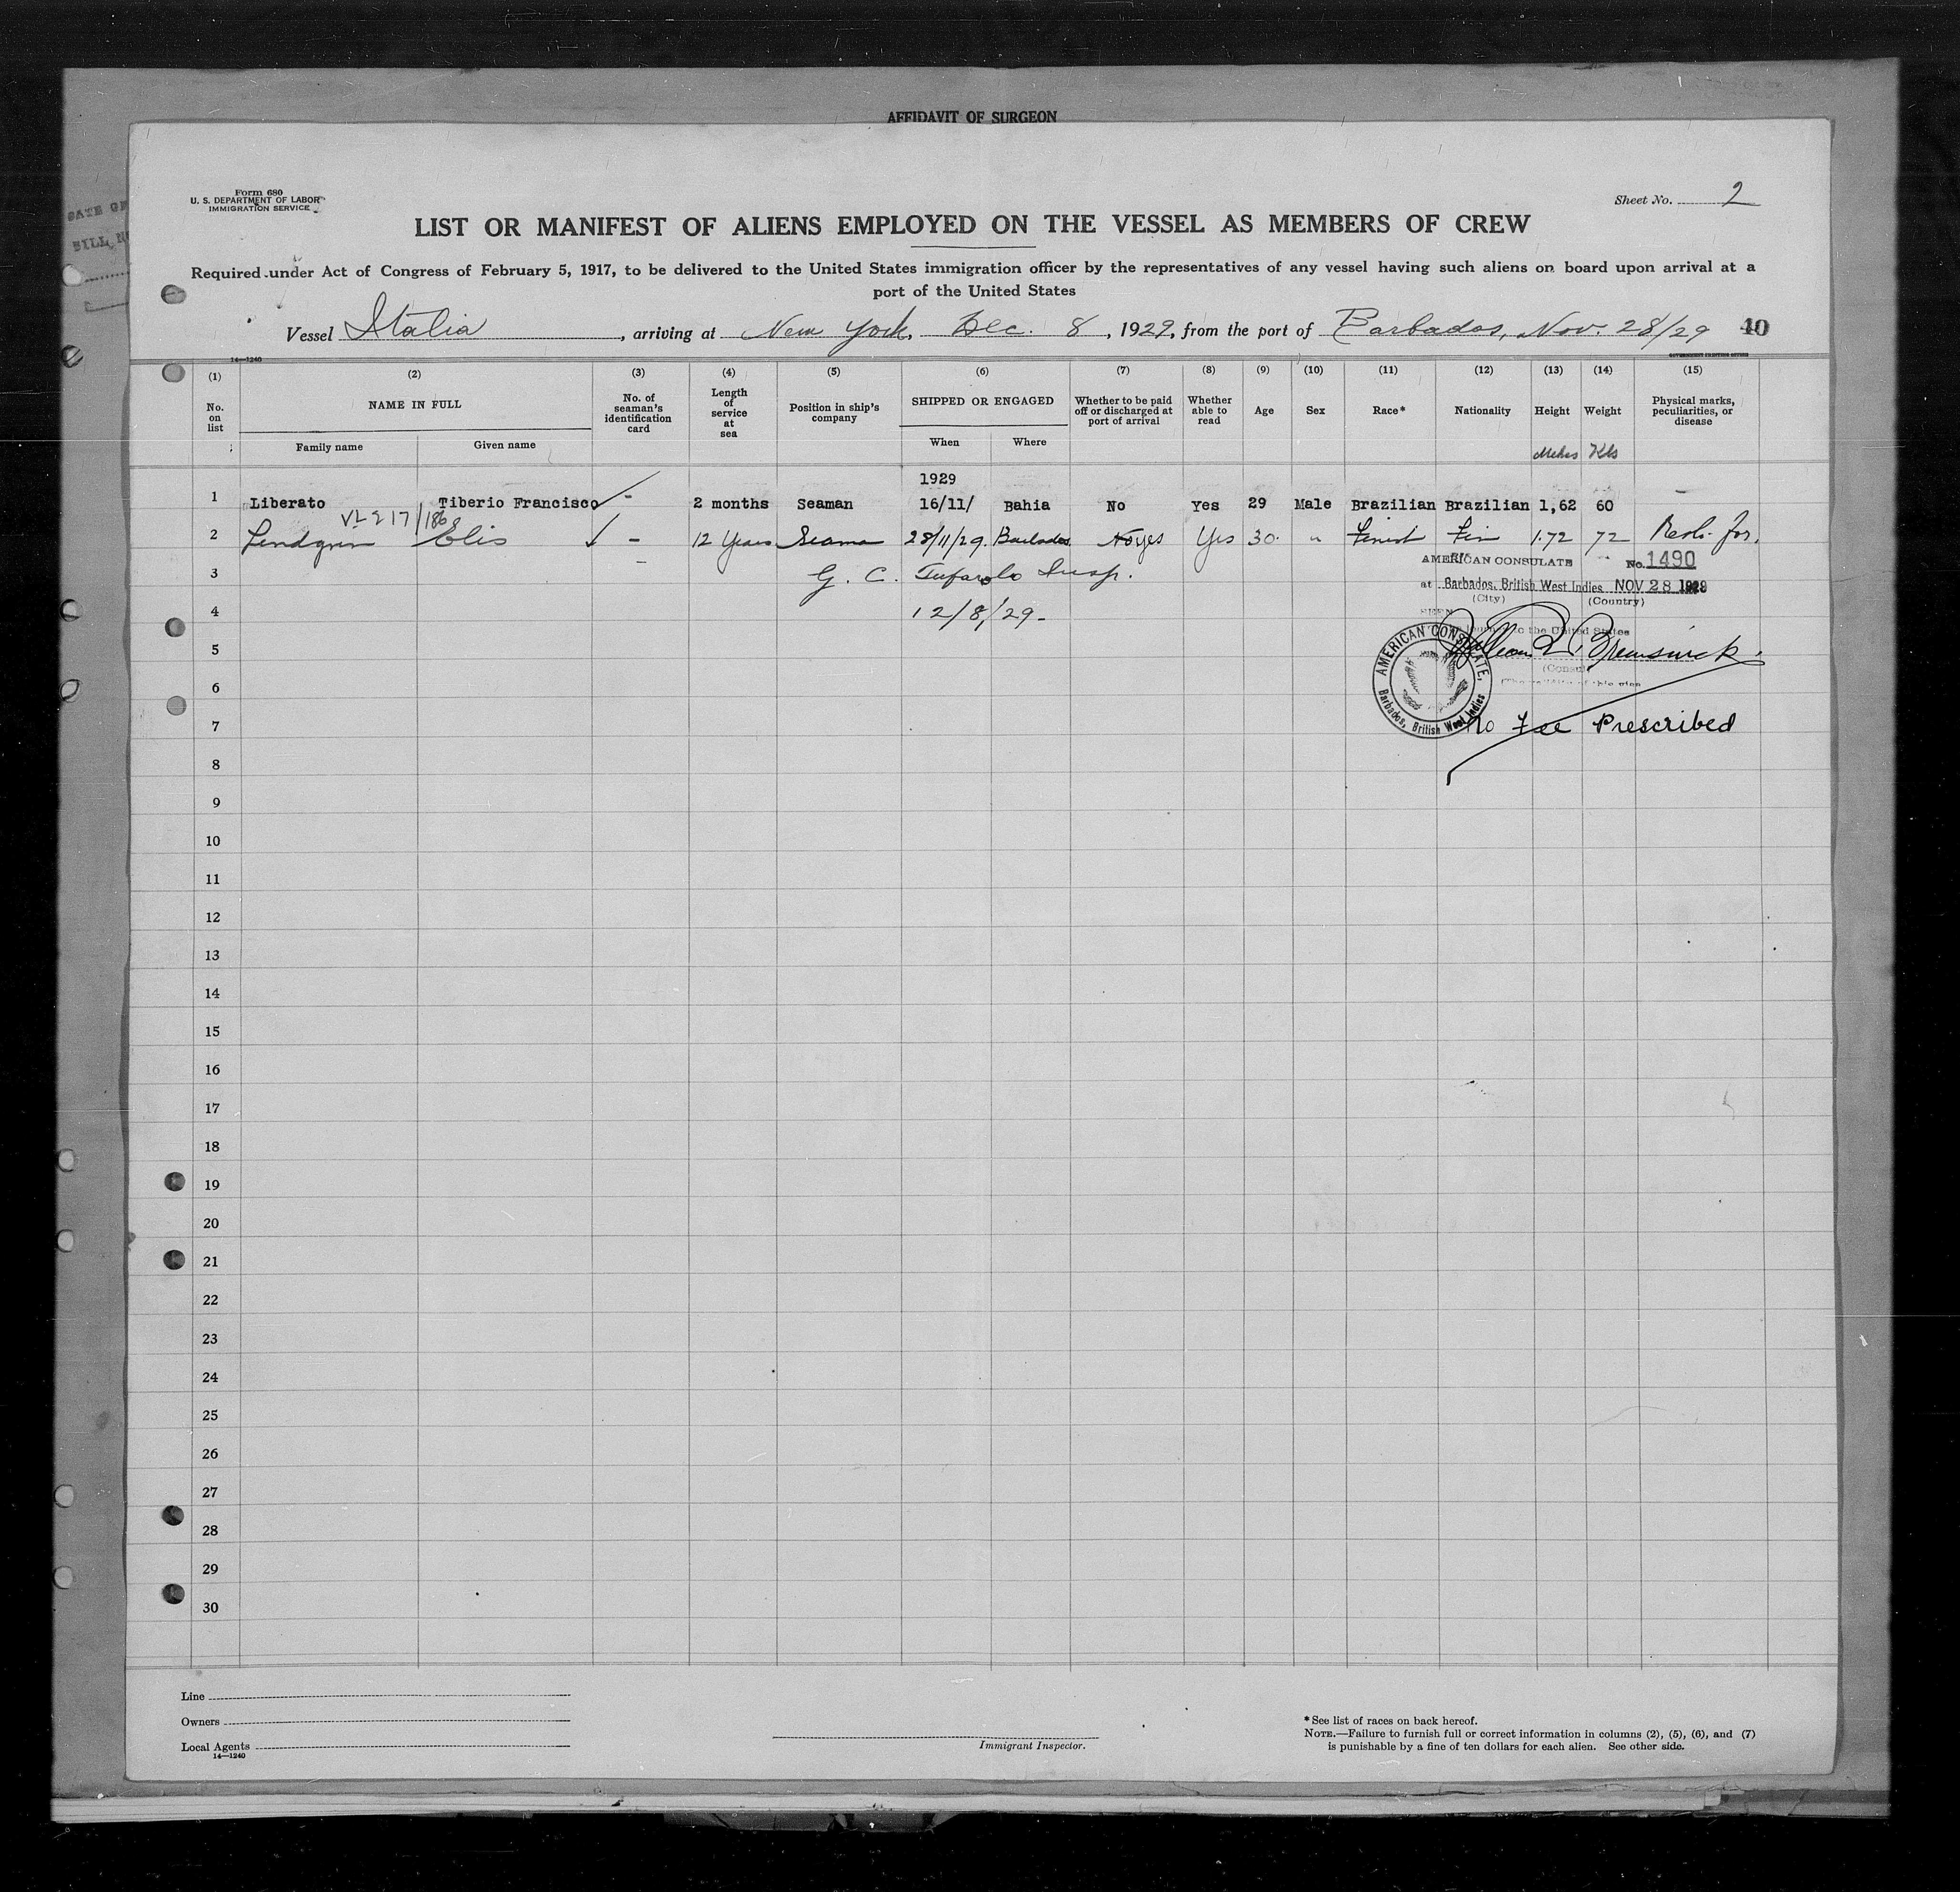 AFFIDAVIT OF SURGEON
Form 680
U. S. DEPARTMENT OF LABOR
IMMIGRATION SERVICE
Sheet No. 2
LIST OR MANIFEST OF ALIENS EMPLOYED ON THE VESSEL AS MEMBERS OF CREW
Required under Act of Congress of February 5, 1917, to be delivered to the United States immigration officer by the representatives of any vessel having such aliens on board upon arrival at a
port of the United States
Vessel Italia, arriving at New York, Dec. 8, 1929, from the port of Barbados, Nov. 28/29 40
14—1240 GOVERNMENT PRINTING OFFICE
(1) (2) (3) (4) (5) (6) (7) (8) (9) (10) (11) (12) (13) (14) (15)
No. on list
NAME IN FULL
Family name
Given name
No. of seaman's identification card
Length of service at sea
Position in ship's company
SHIPPED OR ENGAGED
When
Where
Whether to be paid off or discharged at port of arrival
Whether able to read
Age
Sex
Race*
Nationality
Height
Weight Kls
Physical marks, peculiarities, or disease
1929
1 Liberato Tiberio Francisco - 2 months Seaman 16/11/ Bahia No Yes 29 Male Brazilian Brazilian 1,62 60 —
2 Lindgren Elis - 12 Years Seaman 28/11/29. Barbados No yes Yes 30 " Finish Fin 1.72 72
3 G. C. Tufarolo Insp.
AMERICAN CONSULATE No. 1490
at Barbados, British West Indies NOV 28 1929
(City) (Country)
4 12/8/29-
SEEN
to the United States
5
(Consul)
AMERICAN CONSULATE, Barbados, British West Indies
6
7 No Fee Prescribed
8
9
10
11
12
13
14
15
16
17
18
19
20
21
22
23
24
25
26
27
28
29
30
Line
Owners
Local Agents
14—1240
Immigrant Inspector.
*See list of races on back hereof.
NOTE.—Failure to furnish full or correct information in columns (2), (5), (6), and (7)
is punishable by a fine of ten dollars for each alien. See other side.